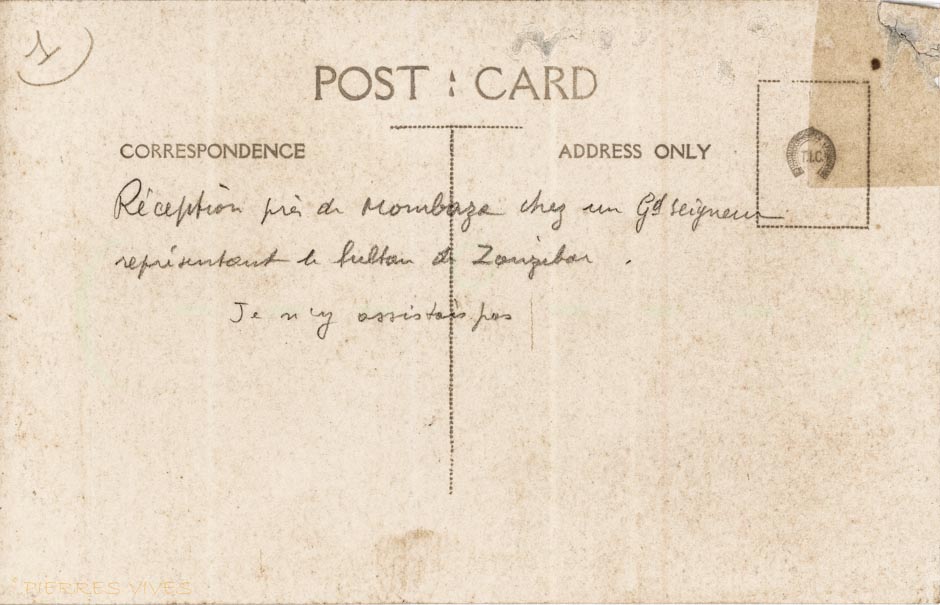 1
POST CARD
CORRESPONDENCE
ADDRESS ONLY
T.I.C.
Réception près de Mombaza chez un Gd seigneur
représentant le sultan de Zanzibar.
Je n'y assistais pas
PIERRES VIVES